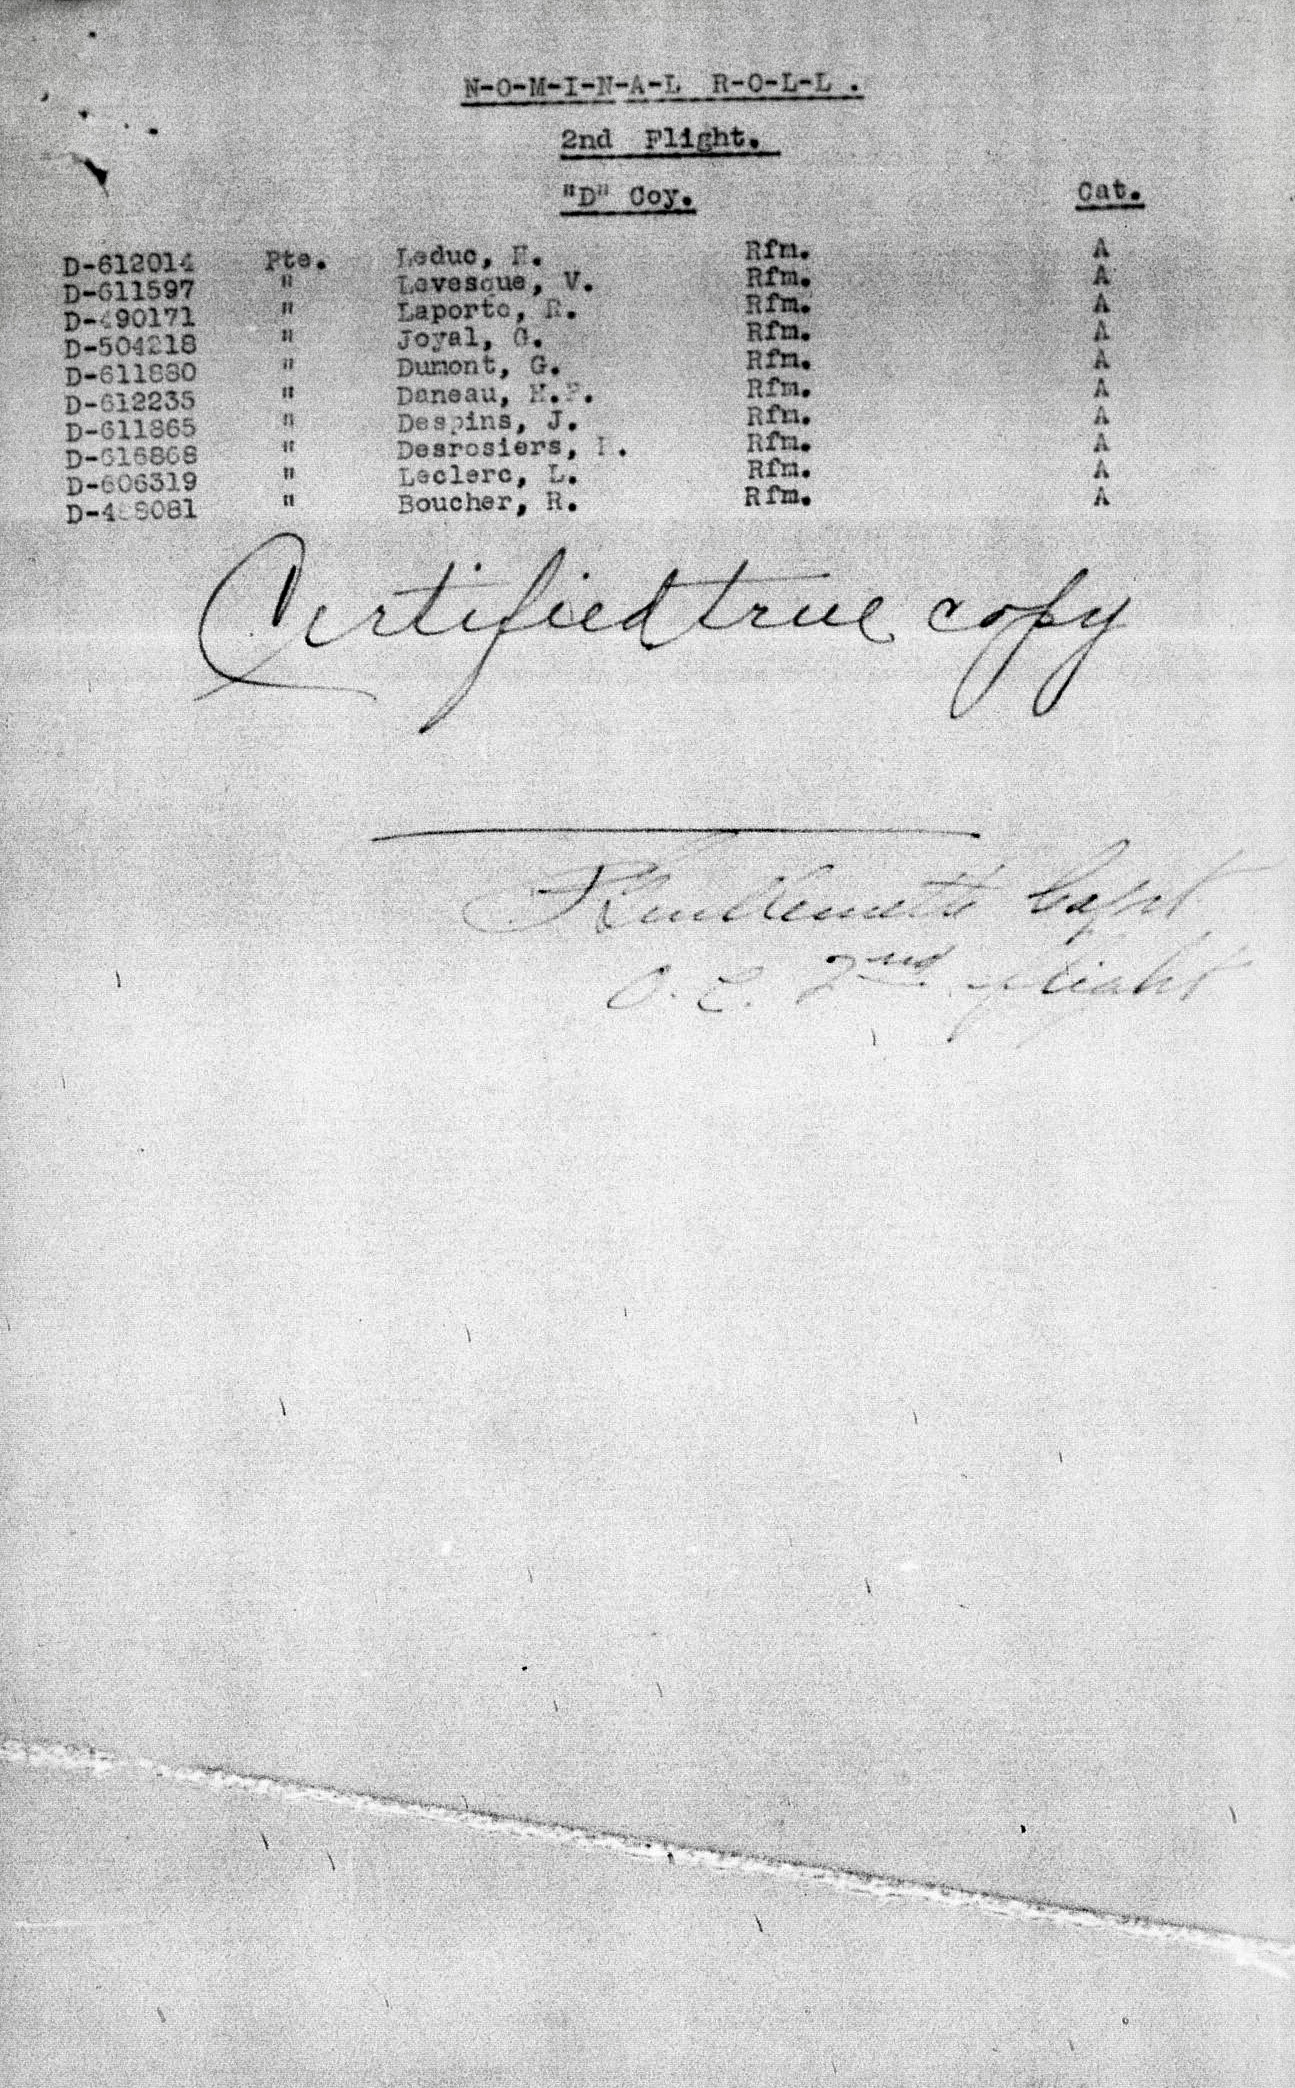 N-O-M-I-N-A-L R-O-L-L .
2nd Flight.
"D" Coy. Cat.
D-612014 Pte. Leduc, H. Rfm. A
D-611597 " Levesque, V. Rfm. A
D-490171 " Laporte, R. Rfm. A
D-504218 " Joyal, G. Rfm. A
D-611880 " Dumont, G. Rfm. A
D-612235 " Daneau, Rfm. A
D-611865 " Despins, J. Rfm. A
D-616868 " Desrosiers, Rfm. A
D-606319 " Leclerc, L. Rfm. A
" Boucher, R. Rfm. A
Certified true copy
Capt
O. C. 2nd flight